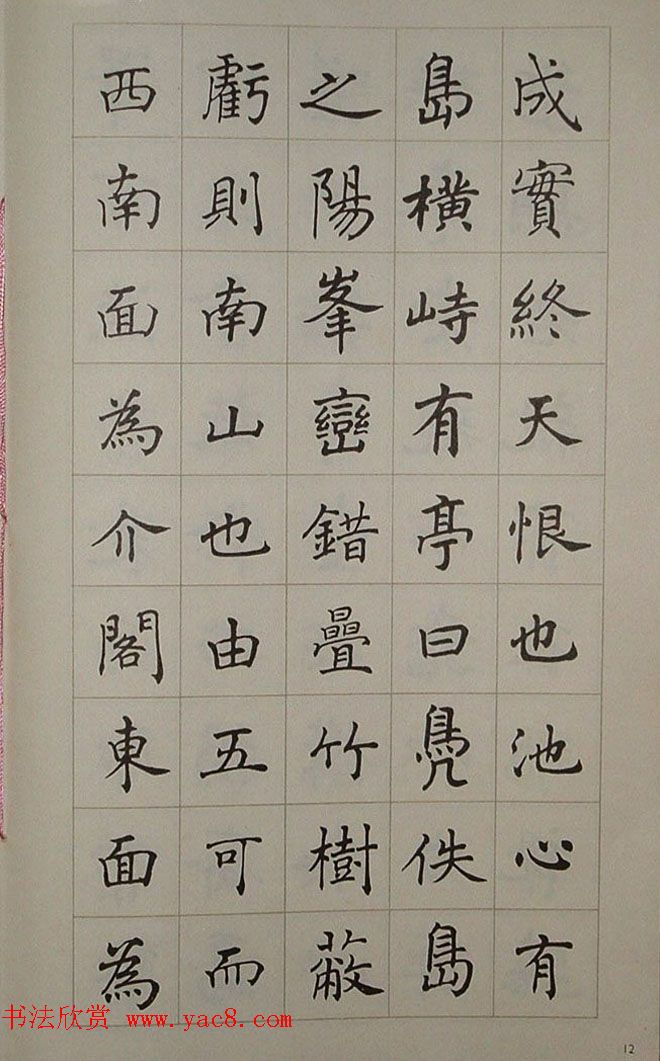 成實終天恨也池心有
島橫峙有亭曰鳧佚島
之陽峯巒錯疊竹樹蔽
虧則南山也由五可而
西南面為介閣東面為
书法欣赏 www.yac8.com
12